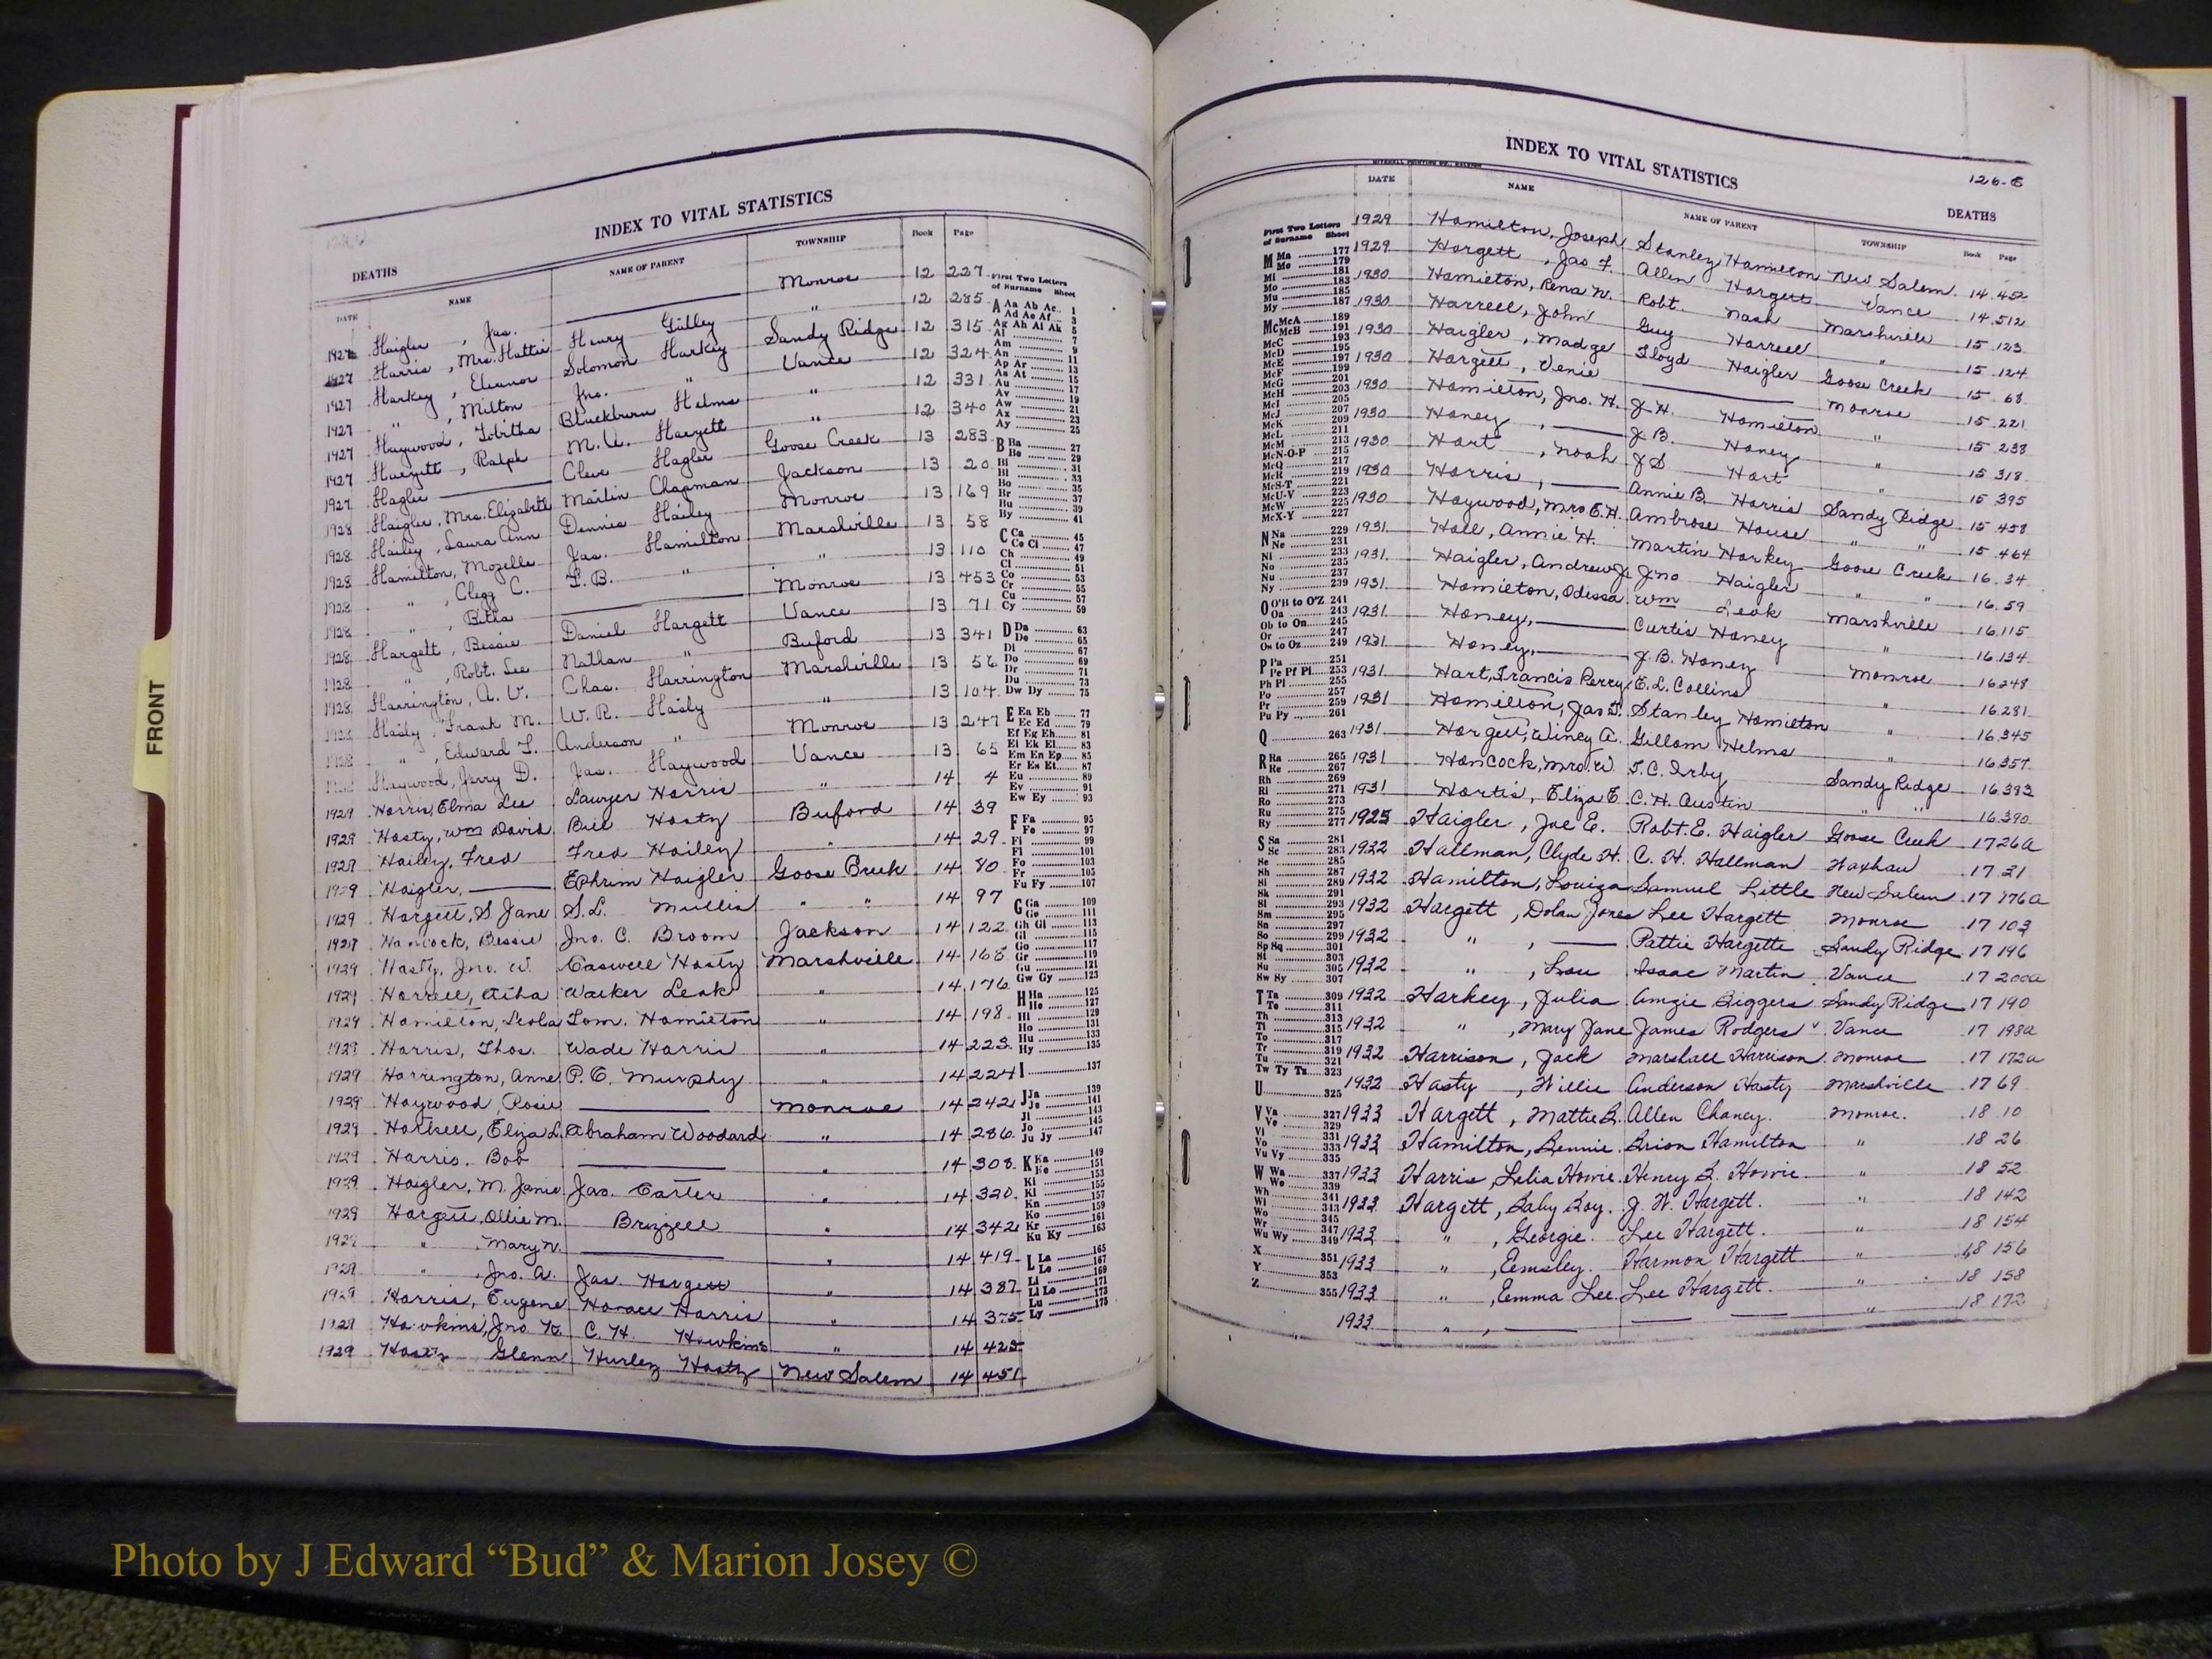 INDEX TO VITAL STATISTICS
DEATHS
DATE NAME NAME OF PARENT TOWNSHIP Book Page
1927 Haigler, Jas. Monroe 12 227
1927 Harris, Mrs. Hattie Henry Gulley " 12 285
1927 Harkey, Eleanor Solomon Harkey Sandy Ridge 12 315
1927 " , Milton Jno. " Vance 12 324
1927 Haywood, Tobitha Blackburn Helms " 12 331
1927 Hargett, Ralph M.A. Hargett " 12 340
1927 Hagler Cleve Hagler Goose Creek 13 283
1928 Haigler, Mrs. Elizabeth Martin Chapman Jackson 13 20
1928 Hailey, Laura Ann Dennis Hailey Monroe 13 169
1928 Hamilton, Mozelle Jas. Hamilton Marshville 13 58
1928 " , Clegg C. T.B. " " 13 110
1928 " , Betha Monroe 13 453
1928 Hargett, Bessie Daniel Hargett Vance 13 71
1928 " , Robt. Lee Nathan " Buford 13 341
1928 Harrington, A. V. Chas. Harrington Marshville 13 56
Hasty, Frank M. W. R. Hasty " 13 104
" , Edward T. Anderson " Monroe 13 247
Haywood, Jerry D. Jas. Haywood Vance 13 65
1929 Harris, Elma Lee Lawyer Harris " 14 4
1929 Hasty, Wm David Bill Hasty Buford 14 39
1929 Hailey, Fred Fred Hailey " 14 29
1929 Haigler, Ephrim Haigler Goose Creek 14 80
1929 Hargett, S. Jane S.L. Mullis " " 14 97
1929 Hancock, Bessie Jno. C. Broom Jackson 14 122
1929 Hasty, Jno. W. Caswell Hasty Marshville 14 168
1929 Harrell, Walker Leak " 14 176
1929 Hamilton, Leola Tom. Hamilton " 14 198
1929 Harris, Thos. Wade Harris " 14 223
1929 Harrington, Anne P.C. Murphy " 14 224
1929 Haywood, Rosie Monroe 14 242
1929 Eliza L. Abraham Woodard " 14 286
1929 Harris, Bob " 14 308
1929 Haigler, M. Janie Jas. Carter " 14 320
1929 Hargett, Ollie M. Brizzell " 14 342
1929 " , Mary N. " 14 419
1929 " , Jno. A. Jas. Hargett " 14 387
1929 Harris, Eugene Horace Harris " 14 375
1929 Hawkins, Jno. C. H. Hawkins " 14 425
1929 Hasty Glenn Hurley Hasty New Salem 14 451
First Two Letters of Surname Sheet
A Aa Ab Ac 1
Ad Ae Af 3
Ag Ah Ai Ak 5
Al 7
Am 9
An 11
Ap Ar 13
As At 15
Au 17
Av 19
Aw 21
Ax 23
Ay 25
B Ba 27
Be 29
Bi 31
Bl 33
Bo 35
Br 37
Bu 39
By 41
C Ca 45
Ce Ci 47
Ch 49
Cl 51
Co 53
Cr 55
Cu 57
Cy 59
D Da 63
De 65
Di 67
Do 69
Dr 71
Du 73
Dw Dy 75
E Ea Eb 77
Ec Ed 79
Ef Eg Eh 81
Ei Ek El 83
Em En Ep 85
Er Es Et 87
Eu 89
Ev 91
Ew Ey 93
F Fa 95
Fe 97
Fi 99
Fl 101
Fo 103
Fr 105
Fu Fy 107
G Ga 109
Ge 111
Gh Gi 113
Gl 115
Go 117
Gr 119
Gu 121
Gw Gy 123
H Ha 125
He 127
Hi 129
Ho 131
Hu 133
Hy 135
I 137
J Ja 139
Je 141
Ji 143
Jo 145
Ju Jy 147
K Ka 149
Ke 151
Ki 153
Kl 155
Kn 157
Ko 159
Kr 161
Ku Ky 163
L La 165
Le 167
Li 169
Ll Lo 171
Lu 173
Ly 175
INDEX TO VITAL STATISTICS
126-C
DEATHS
DATE NAME NAME OF PARENT TOWNSHIP Book Page
1929 Hamilton, Joseph Stanley Hamilton New Salem 14 452
1929 Hargett, Jas F. Allen Hargett Vance 14 512
1930 Hamilton, Rena N. Robt. Nash Marshville 15 123
1930 Harrell, John Guy Harrell " 15 124
1930 Haigler, Madge Floyd Haigler Goose Creek 15 68
1930 Hargett, Venie Monroe 15 221
1930 Hamilton, Jno. H. J.H. Hamilton " 15 238
1930 Haney, J.B. Haney " 15 318
1930 Hart, Noah J.S. Hart " 15 395
1930 Harris, Annie B. Harris Sandy Ridge 15 458
1930 Haywood, Mrs E.H. Ambrose House " " 15 464
1931 Hall, Annie H. Martin Harkey Goose Creek 16 34
1931 Haigler, Andrew J. Jno Haigler " " 16 59
1931 Hamilton, Odessa Wm Leak Marshville 16 115
1931 Haney, Curtis Haney " 16 134
1931 Haney, J.B. Haney Monroe 16 248
1931 Hart, Francis Perry E.L. Collins " 16 281
1931 Hamilton, Jas T. Stanley Hamilton " 16 345
1931 Hargett, Winey A. Gillam Helms " 16 357
1931 Hancock, Mrs. W. T.C. Irby Sandy Ridge 16 382
1931 Hartis, Eliza E. C.H. Austin " " 16 390
1925 Haigler, Joe E. Robt. E. Haigler Goose Creek 17 26a
1932 Hallman, Clyde H. C. H. Hallman Waxhaw 17 31
1932 Hamilton, Louiza Samuel Little New Salem 17 176a
1932 Hargett, Dolan Jones Lee Hargett Monroe 17 103
1932 " , Pattie Hargette Sandy Ridge 17 196
1932 " , Lou Isaac Martin Vance 17 200a
1932 Harkey, Julia Amzie Biggers Sandy Ridge 17 190
1932 " , Mary Jane James Rodgers Vance 17 198a
1932 Harrison, Jack Marshall Harrison Monroe 17 172a
1932 Hasty, Willie Anderson Hasty Marshville 17 69
1933 Hargett, Mattie B. Allen Chaney. Monroe. 18 10
1933 Hamilton, Bennie. Brion Hamilton " 18 26
1933 Harris, Lelia Howie. Henry B. Howie. " 18 52
1933 Hargett, Baby Boy. J. W. Hargett. " 18 142
1933 " , Georgie. Lee Hargett. " 18 154
1933 " , Emsley. Harmon Hargett " 18 156
1933 " , Emma Lee. Lee Hargett. " 18 158
1933 " , " 18 172
First Two Letters of Surname Sheet
M Ma 177
Me 179
Mi 181
Mo 183
Mu 185
My 187
Mc McA 189
McB 191
McC 193
McD 195
McE 197
McF 199
McG 201
McH 203
McI 205
McJ 207
McK 209
McL 211
McM 213
McN-O-P 215
McQ 217
McR 219
McS-T 221
McU-V 223
McW 225
McX-Y 227
N Na 229
Ne 231
Ni 233
No 235
Nu 237
Ny 239
O O'B to O'Z 241
Oa 243
Ob to On 245
Or 247
Os to Oz 249
P Pa 251
Pe Pf Pi 253
Ph Pl 255
Po 257
Pr 259
Pu Py 261
Q 263
R Ra 265
Re 267
Rh 269
Ri 271
Ro 273
Ru 275
Ry 277
S Sa 281
Sc 283
Se 285
Sh 287
Si 289
Sk 291
Sl 293
Sm 295
Sn 297
So 299
Sp Sq 301
St 303
Su 305
Sw Sy 307
T Ta 309
Te 311
Th 313
Ti 315
To 317
Tr 319
Tu 321
Tw Ty Tz 323
U 325
V Va 327
Ve 329
Vi 331
Vo 333
Vu Vy 335
W Wa 337
We 339
Wh 341
Wi 343
Wo 345
Wr 347
Wu Wy 349
X 351
Y 353
Z 355
FRONT
Photo by J Edward “Bud” & Marion Josey ©